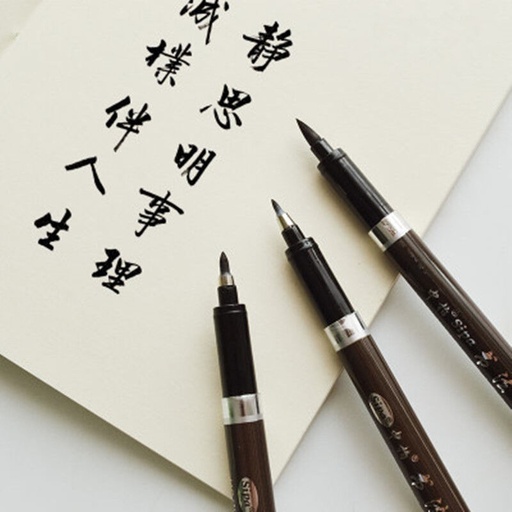 静思明事理
诚樸伴人生
Sipa
Sipa